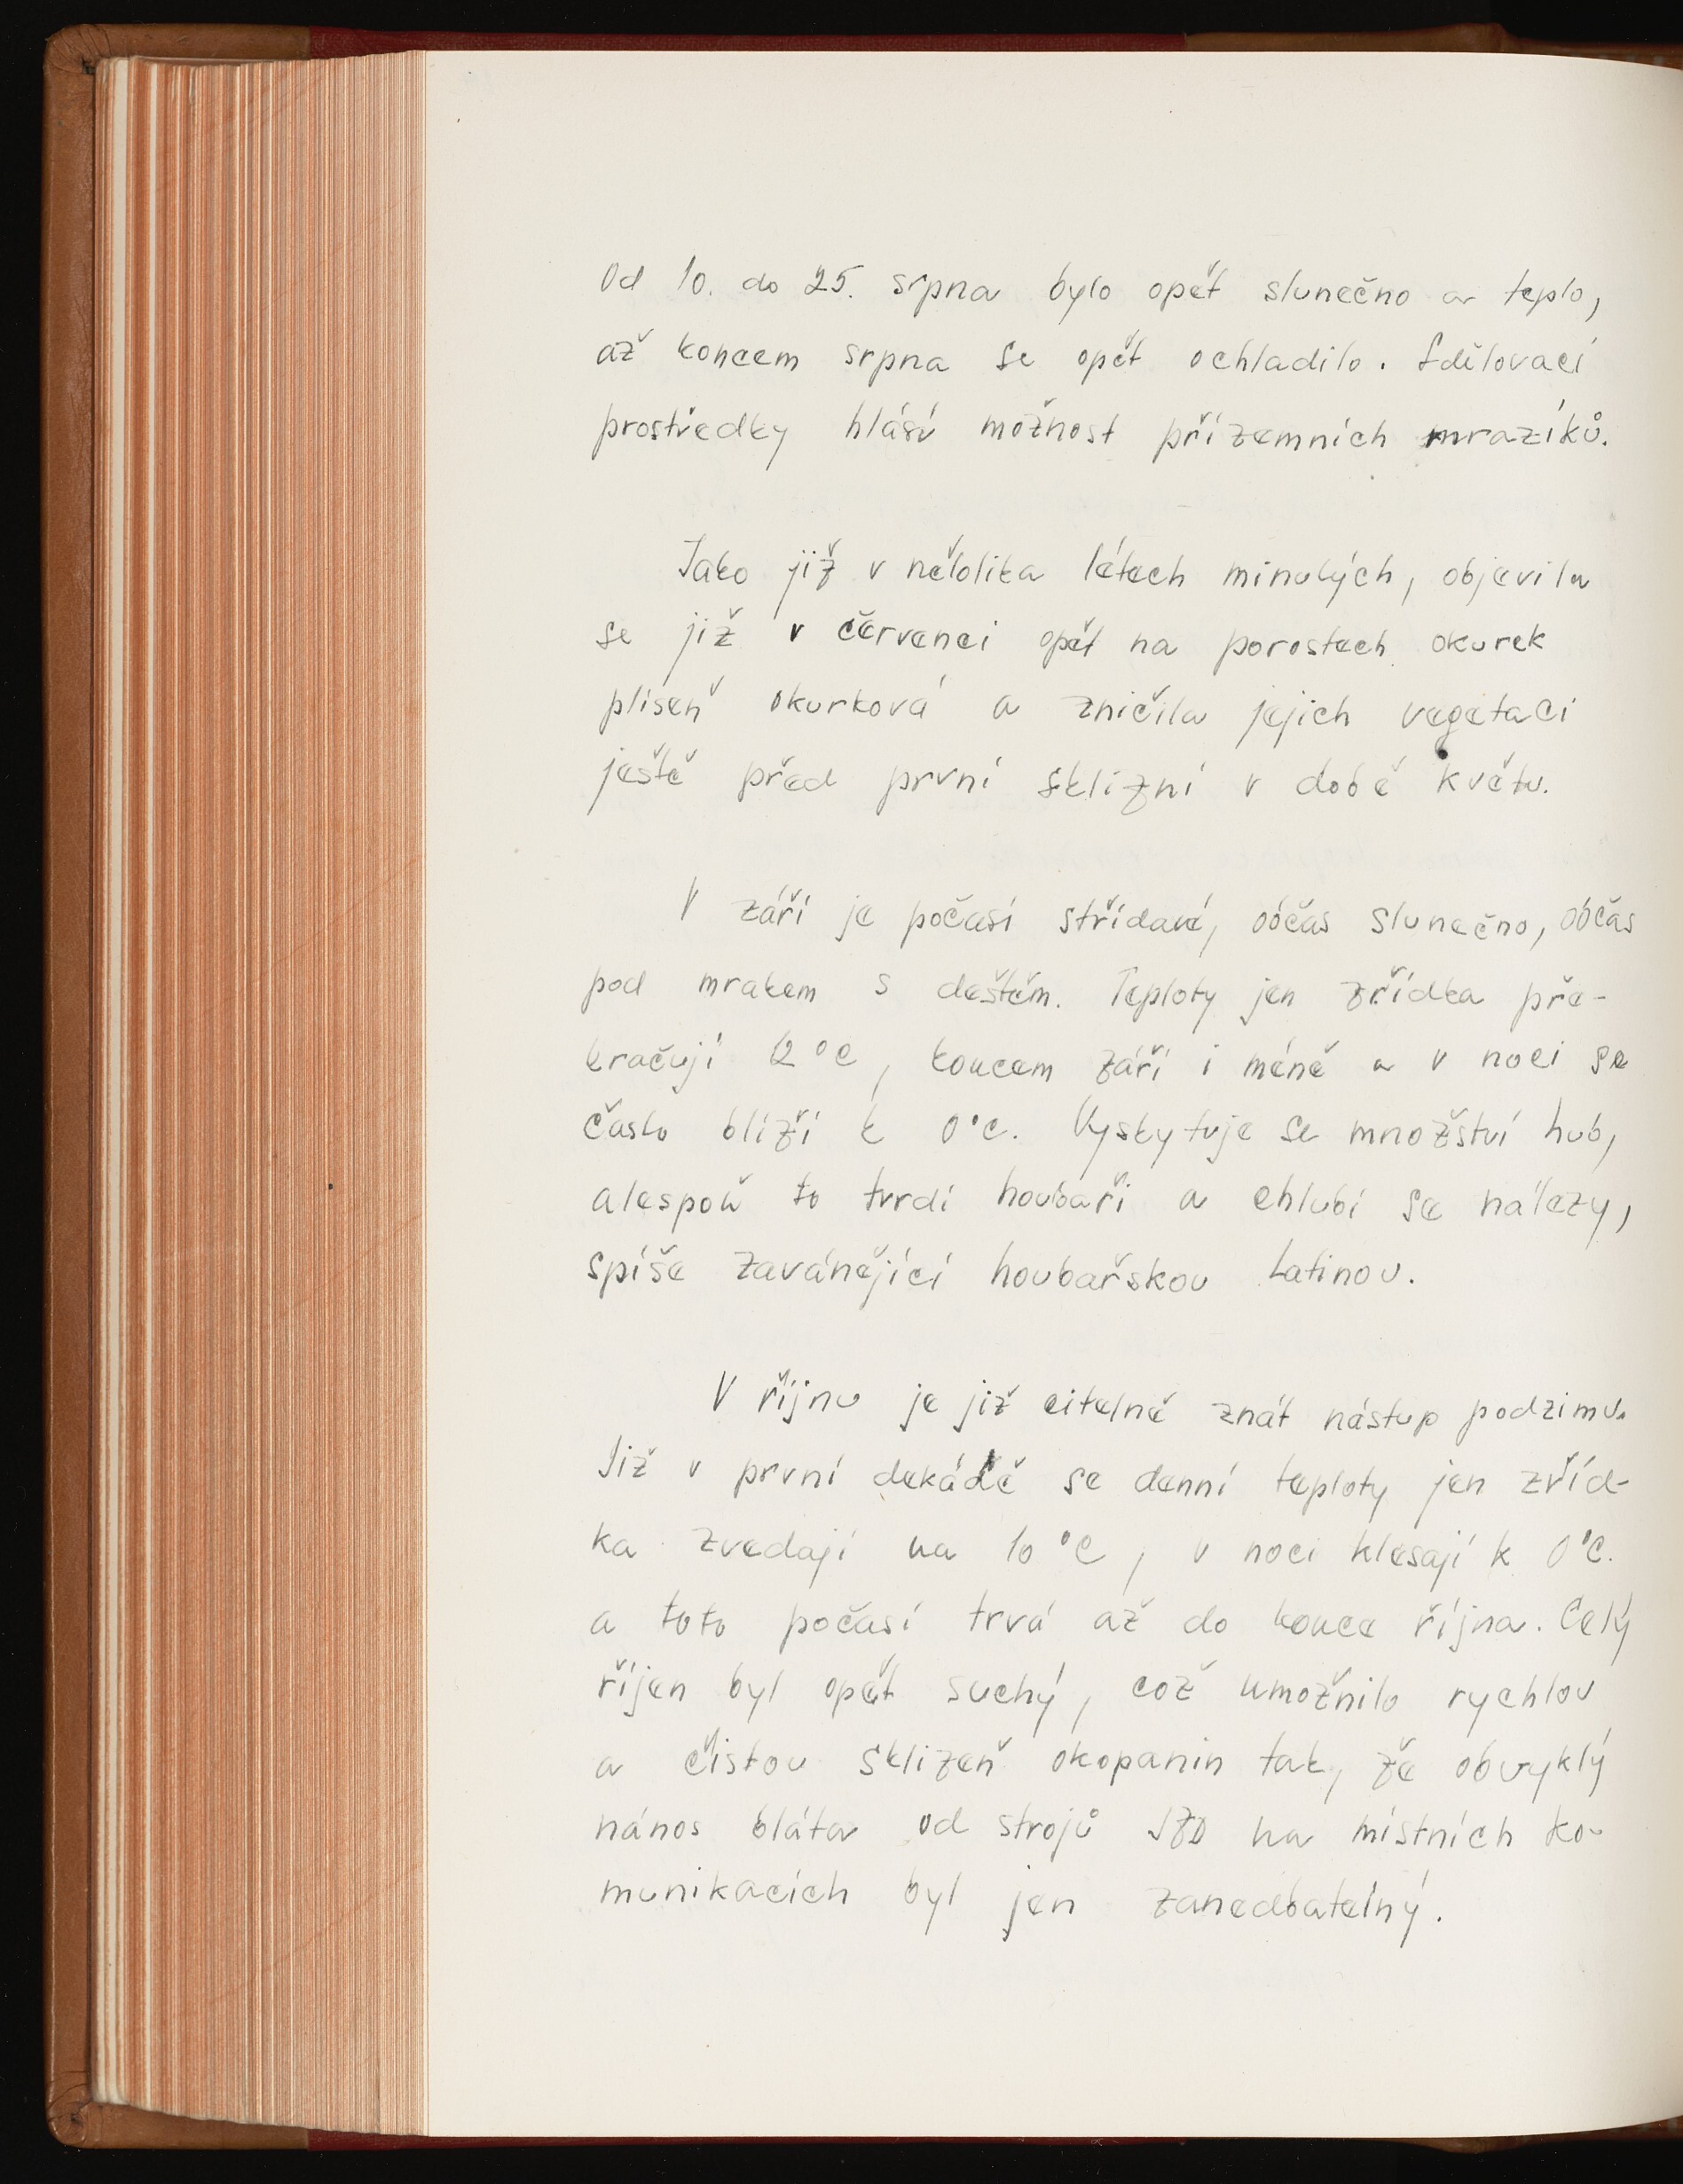 Od 10. do 25. srpna bylo opět slunečno a teplo,
až koncem srpna se opět ochladilo. Sdělovací
prostředky hlásí možnost přízemních mrazíků.
Jako již v několika létech minulých, objevila
se již v červenci opět na porostech okurek
plíseň okurková a zničila jejich vegetaci
ještě před první sklizní v době květu.
V září je počasí střídavé, občas slunečno, občas
pod mrakem s deštěm. Teploty jen zřídka pře-
kračují 12 °C, koncem září i méně a v noci se
často blíží k 0°C. Vyskytuje se množství hub,
alespoň to tvrdí houbaři a chlubí se nálezy,
spíše zavánějící houbařskou latinou.
V říjnu je již citelně znát nástup podzimu.
Již v první dekádě se denní teploty jen zříd-
ka zvedají na 10 °C, v noci klesají k 0°C.
a toto počasí trvá až do konce října. Celý
říjen byl opět suchý, což umožnilo rychlou
a čistou sklizeň okopanin tak, že obvyklý
nános bláta od strojů JZD na místních ko-
munikacích byl jen zanedbatelný.